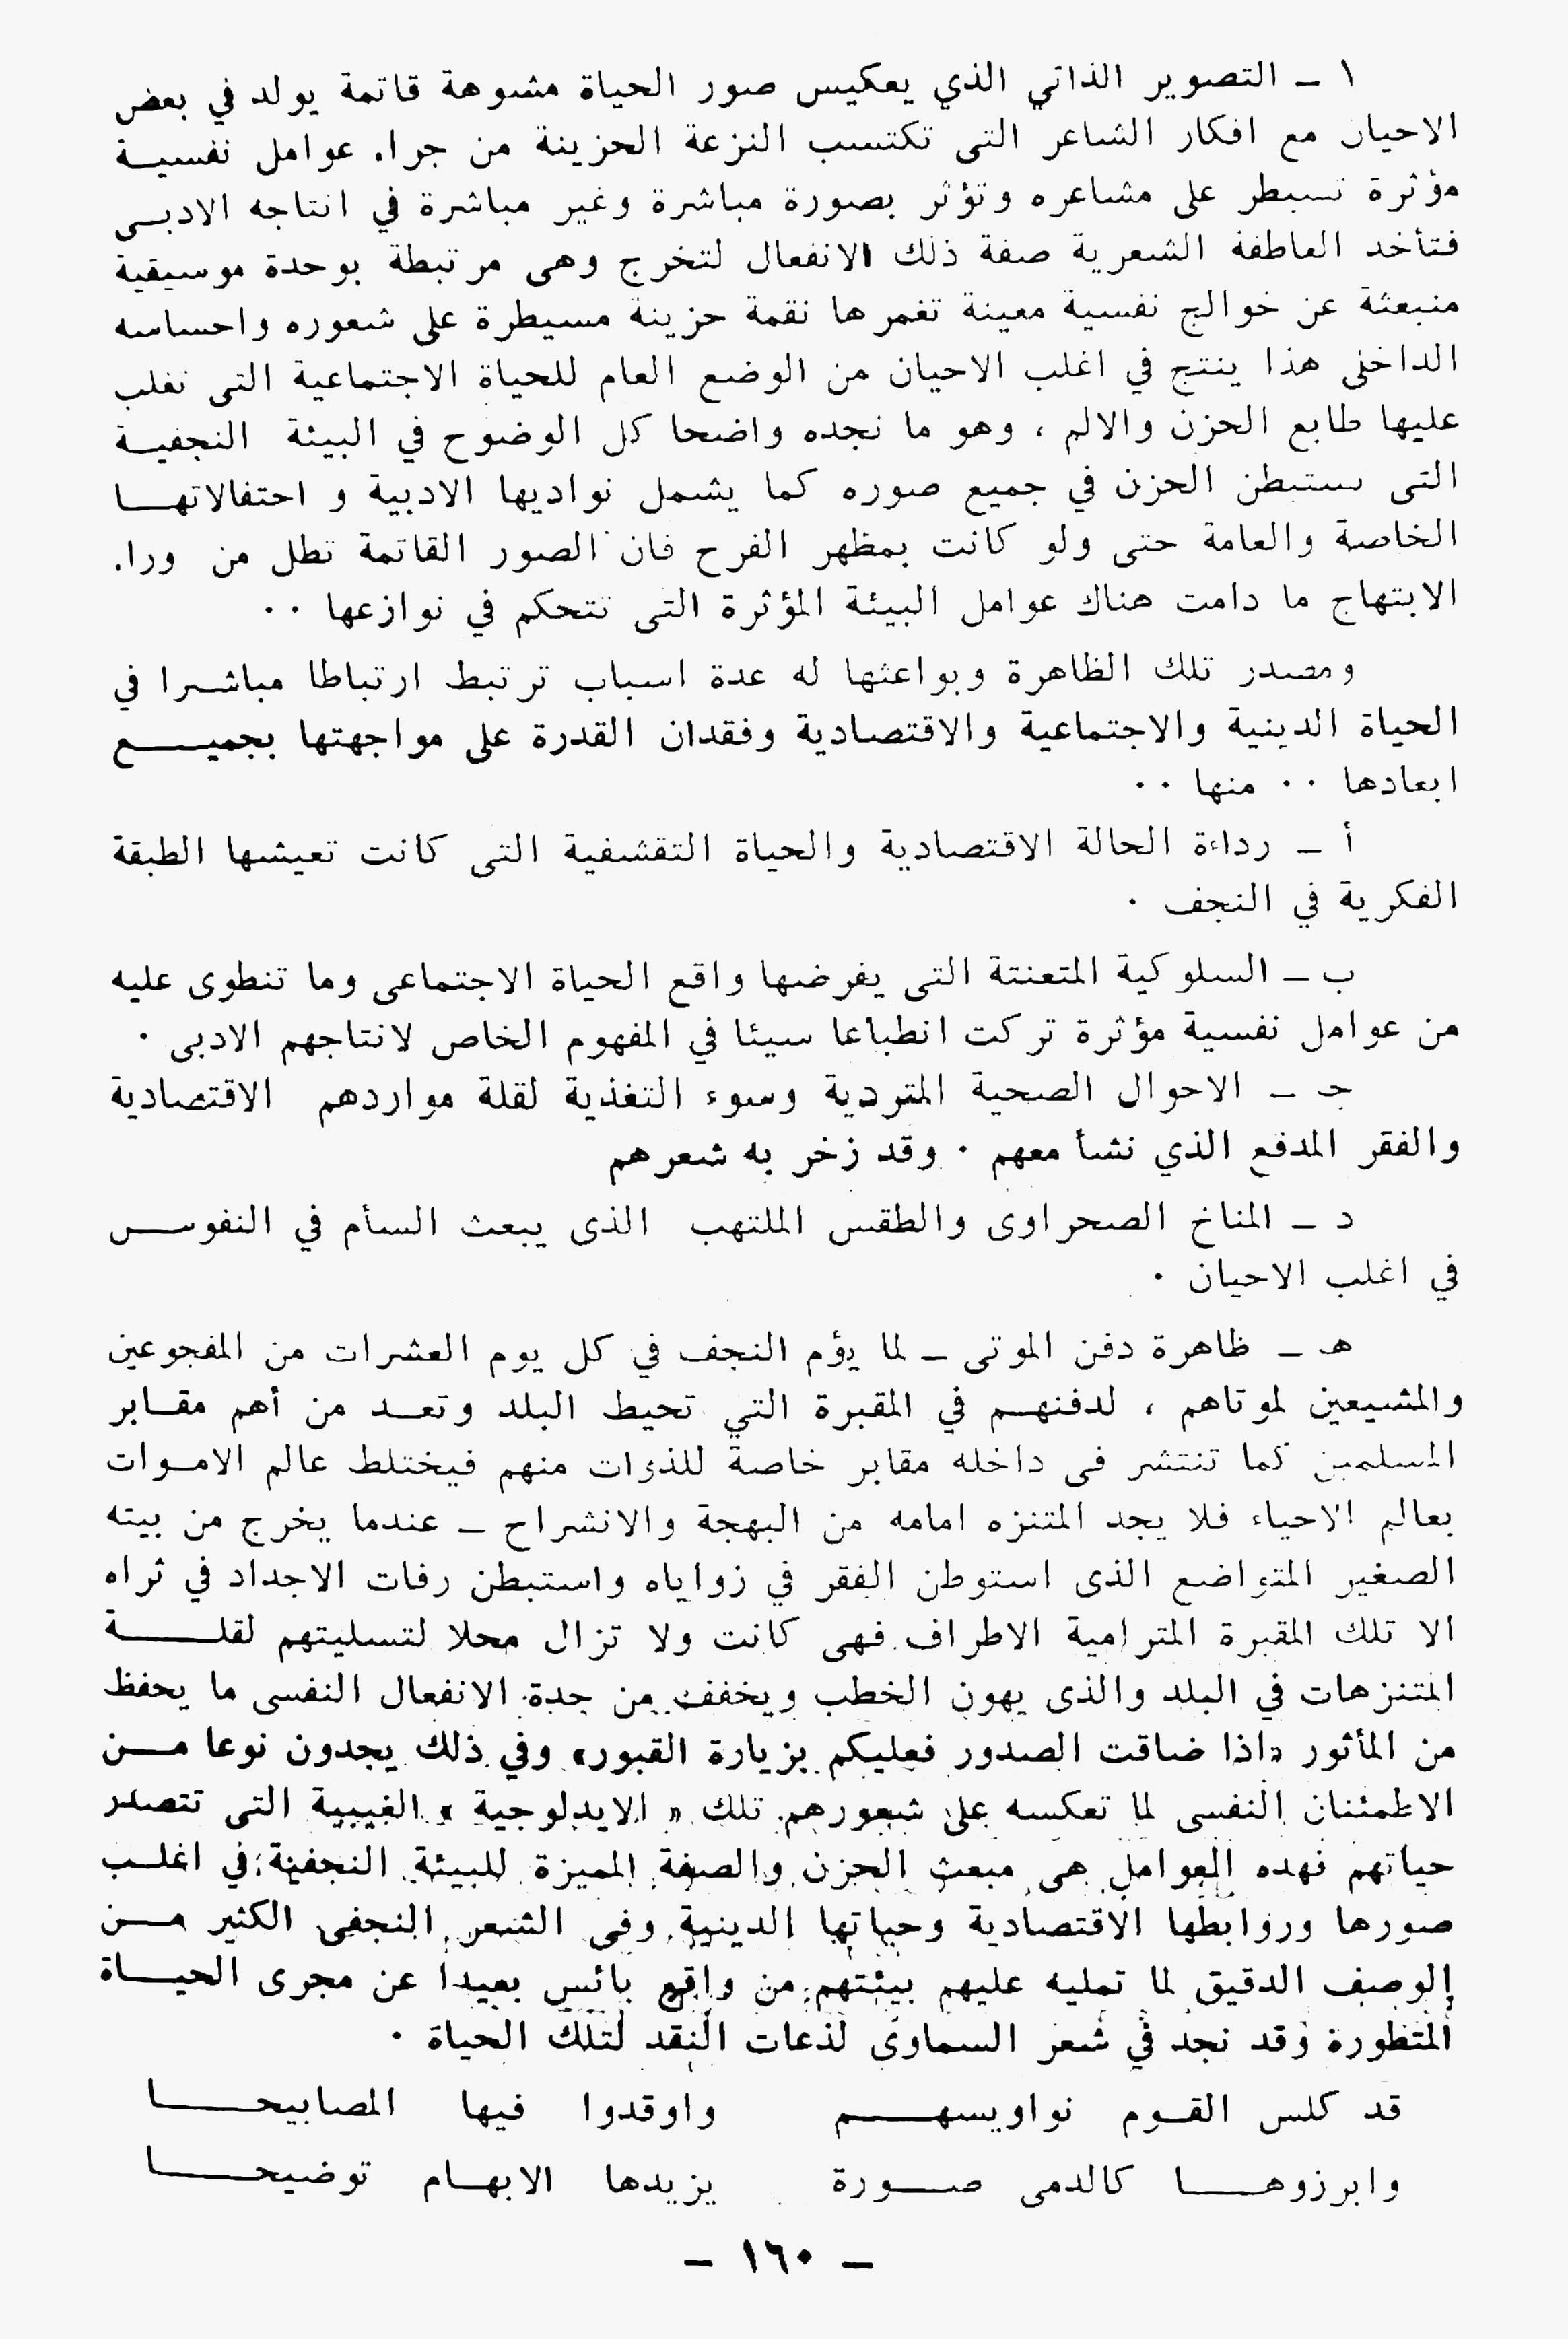 ١ ـ التصوير الذاتي الذي يعكيس صور الحياة مشوهة قاتمة يولد في بعض
الاحيان مع افكار الشاعر التى تكتسب النزعة الحزينة من جراء عوامل نفسيـة
مؤثرة تسيطر على مشاعره وتؤثر بصورة مباشرة وغير مباشرة في انتاجه الادبـى
فتأخد العاطفة الشعرية صفة ذلك الانفعال لتخرج وهى مرتبطة بوحدة موسيقية
منبعثة عن خوالج نفسية معينة تغمرها نقمة حزينة مسيطرة على شعوره واحساسه
الداخلى هذا ينتج في اغلب الاحيان من الوضع العام للحياة الاجتماعية التى تغلب
عليها طابع الحزن والالم ، وهو ما نجده واضحا كل الوضوح في البيئة النجفيـة
التى تستبطن الحزن في جميع صوره كما يشمل نواديها الادبية و احتفالاتهـا
الخاصة والعامة حتى ولو كانت بمظهر الفرح فان الصور القاتمة تطل من وراء
الابتهاج ما دامت هناك عوامل البيئة المؤثرة التى تتحكم في نوازعها ٠٠
ومصدر تلك الظاهرة وبواعثها له عدة اسباب ترتبط ارتباطا مباشـرا في
الحياة الدينية والاجتماعية والاقتصادية وفقدان القدرة على مواجهتها بجميـــع
ابعادها ٠٠ منها ٠٠
أ ـ رداءة الحالة الاقتصادية والحياة التقشفية التى كانت تعيشها الطبقة
الفكرية في النجف ٠
ب ـ السلوكية المتعنتة التى يفرضها واقع الحياة الاجتماعى وما تنطوى عليه
من عوامل نفسية مؤثرة تركت انطباعا سيئا في المفهوم الخاص لانتاجهم الادبى ٠
جـ ـ الاحوال الصحية المتردية وسوء التغذية لقلة مواردهم الاقتصادية
والفقر المدفع الذي نشأ معهم ٠ وقد زخر به شعرهم
د ـ المناخ الصحراوى والطقس الملتهب الذى يبعث السأم في النفوس
في اغلب الاحيان ٠
هـ ـ ظاهرة دفن الموتى ـ لما يؤم النجف في كل يوم العشرات من المفجوعين
والمشيعين لموتاهم ، لدفنهـم في المقبرة التي تحيط البلد وتعـد من أهم مقـابر
المسلمين كما تنتشر فى داخله مقابر خاصة للذوات منهم فيختلط عالم الامـوات
بعالم الاحياء فلا يجد المتنزه امامه من البهجة والانشراح ـ عندما يخرج من بيته
الصغير المتواضع الذى استوطن الفقر في زواياه واستبطن رفات الاجداد في ثراه
الا تلك المقبرة المترامية الاطراف فهى كانت ولا تزال محلا لتسليتهم لقلـــة
المتنزهات في البلد والذى يهون الخطب ويخفف من حدة الانفعال النفسى ما يحفظ
من المأثور «اذا ضاقت الصدور فعليكم بزيارة القبور» وفي ذلك يجدون نوعا مـن
الاطمئنان النفسى لما تعكسه على شعورهم تلك « الايدلوجية » الغيبية التى تتصدر
حياتهم فهده العوامل هى مبعث الحزن والصفة المميزة للبيئة النجفية في اغلـب
صورها وروابطها الاقتصادية وحياتها الدينية وفى الشعر النجفى الكثير مـن
الوصف الدقيق لما تمليه عليهم بيئتهم من واقع بائس بعيدا عن مجرى الحيـاة
المتطورة وقد نجد في شعر السماوى لذعات النقد لتلك الحياة ٠
قد كلس القـوم نواويسهـــم واوقدوا فيها المصابيحــا
وابرزوهـــا كالدمى صـــورة يزيدها الابهـام توضيحـــا
ـ ١٦٠ ـ